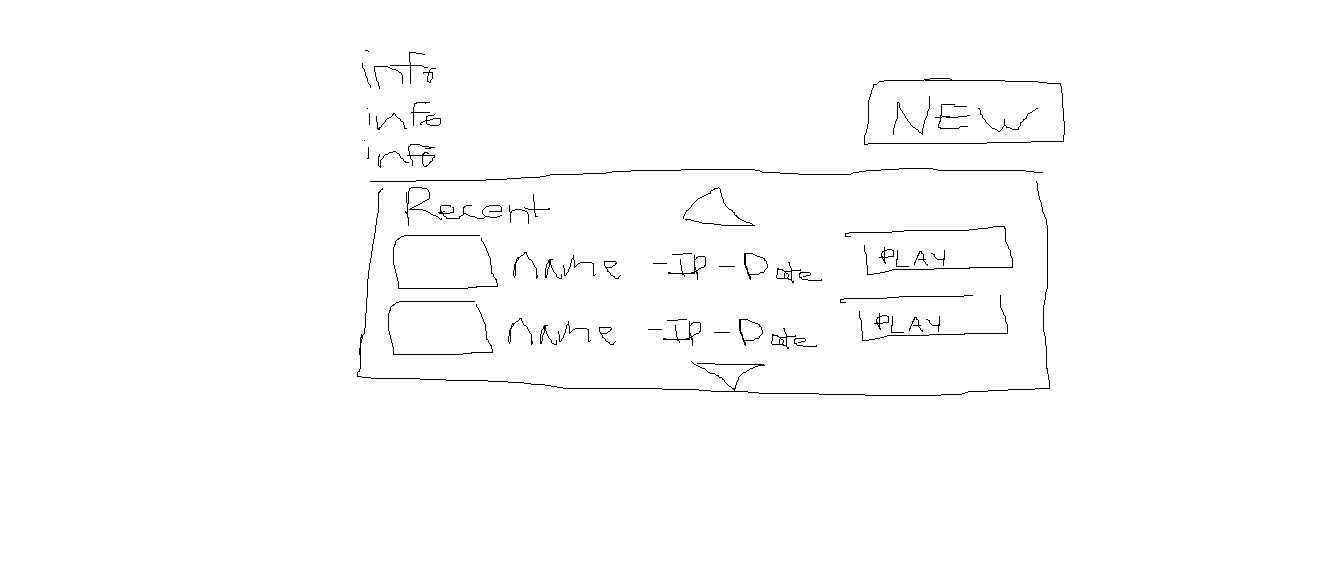 info
info
info
NEW
Recent
Name - IP - Date
PLAY
Name - IP - Date
PLAY